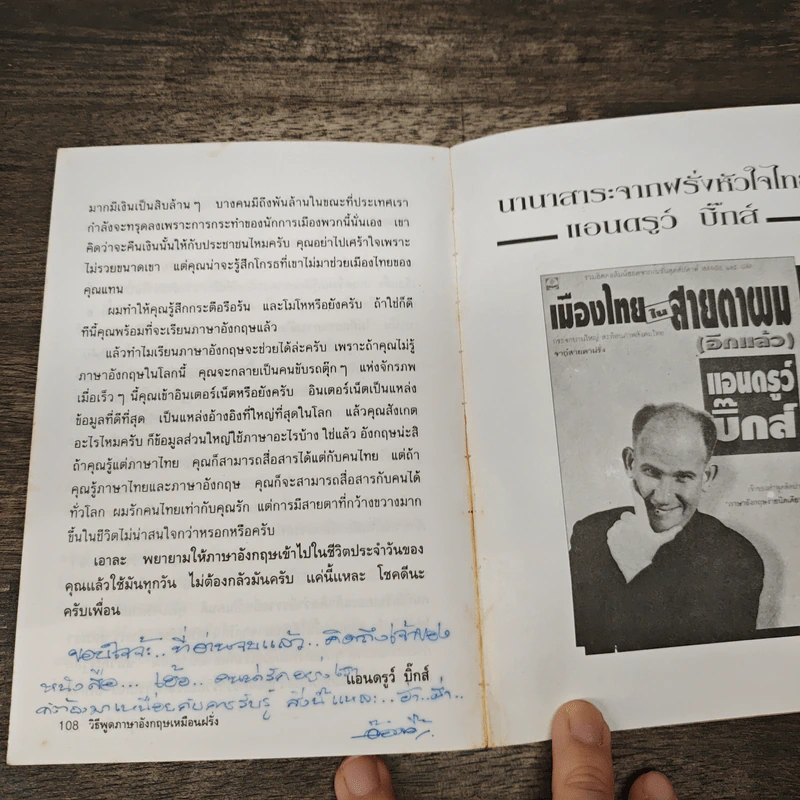 มากมีเงินเป็นสิบล้านๆ บางคนมีถึงพันล้านในขณะที่ประเทศเรา
กำลังจะทรุดลงเพราะการกระทำของนักการเมืองพวกนี้นั่นเอง เขา
คิดว่าจะคืนเงินนั้นให้กับประชาชนไหมครับ คุณอย่าไปเศร้าใจเพราะ
ไม่รวยขนาดเขา แต่คุณน่าจะรู้สึกโกรธที่เขาไม่มาช่วยเมืองไทยของ
คุณแทน
ผมทำให้คุณรู้สึกกระตือรือร้น และโมโหหรือยังครับ ถ้าใช่ก็ดี
ทีนี้คุณพร้อมที่จะเรียนภาษาอังกฤษแล้ว
แล้วทำไมเรียนภาษาอังกฤษจะช่วยได้ล่ะครับ เพราะถ้าคุณไม่รู้
ภาษาอังกฤษในโลกนี้ คุณจะกลายเป็นคนขับรถตุ๊กๆ แห่งจักรภพ
เมื่อเร็วๆ นี้คุณเข้าอินเตอร์เน็ตหรือยังครับ อินเตอร์เน็ตเป็นแหล่ง
ข้อมูลที่ดีที่สุด เป็นแหล่งอ้างอิงที่ใหญ่ที่สุดในโลก แล้วคุณสังเกต
อะไรไหมครับ ก็ข้อมูลส่วนใหญ่ใช้ภาษาอะไรบ้าง ใช่แล้ว อังกฤษน่ะสิ
ถ้าคุณรู้แต่ภาษาไทย คุณก็สามารถสื่อสารได้แต่กับคนไทย แต่ถ้า
คุณรู้ภาษาไทยและภาษาอังกฤษ คุณก็จะสามารถสื่อสารกับคนได้
ทั่วโลก ผมรักคนไทยเท่ากับคุณรัก แต่การมีสายตาที่กว้างขวางมาก
ขึ้นในชีวิตไม่น่าสนใจกว่าหรอกหรือครับ
เอาละ พยายามให้ภาษาอังกฤษเข้าไปในชีวิตประจำวันของ
คุณแล้วใช้มันทุกวัน ไม่ต้องกลัวมันครับ แค่นี้แหละ โชคดีนะ
ครับเพื่อน
ขอบใจจ้ะ.. ที่อ่านจบแล้ว.. คิดถึงเจ้าของ
หนังสือ... เฮ้อ..
แอนดรูว์ บิ๊กส์
สิ่งนี้แหละ..
108 วิธีพูดภาษาอังกฤษเหมือนฝรั่ง
นานาสาระจากฝรั่งหัวใจไทย
แอนดรูว์ บิ๊กส์
เมืองไทยในสายตาผม
(อีกแล้ว)
จากสายตาฝรั่ง
แอนดรูว์
บิ๊กส์